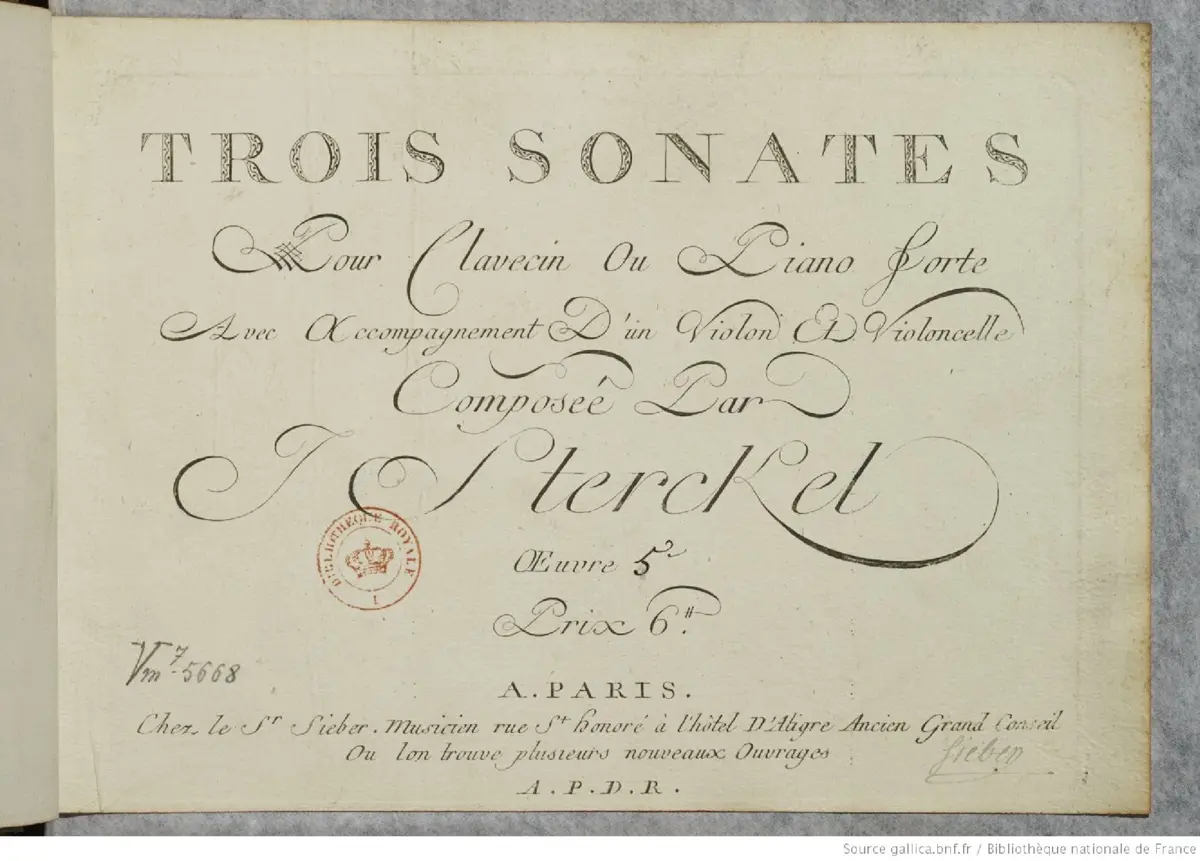 TROIS SONATES
Pour Clavecin Ou Piano Forte
Avec Accompagnement D'un Violon Et Violoncelle
Composeé Par
J Sterckel
Œuvre 5e
Prix 6.tt
BIBLIOTHEQUE ROYALE
1
Vm7.5668
A. PARIS.
Chez le Sr Sieber. Musicien rue St honoré à l'hôtel D'Aligre Ancien Grand Conseil
Ou lon trouve plusieurs nouveaux Ouvrages
Sieber
A.P.D.R.
Source gallica.bnf.fr / Bibliothèque nationale de France